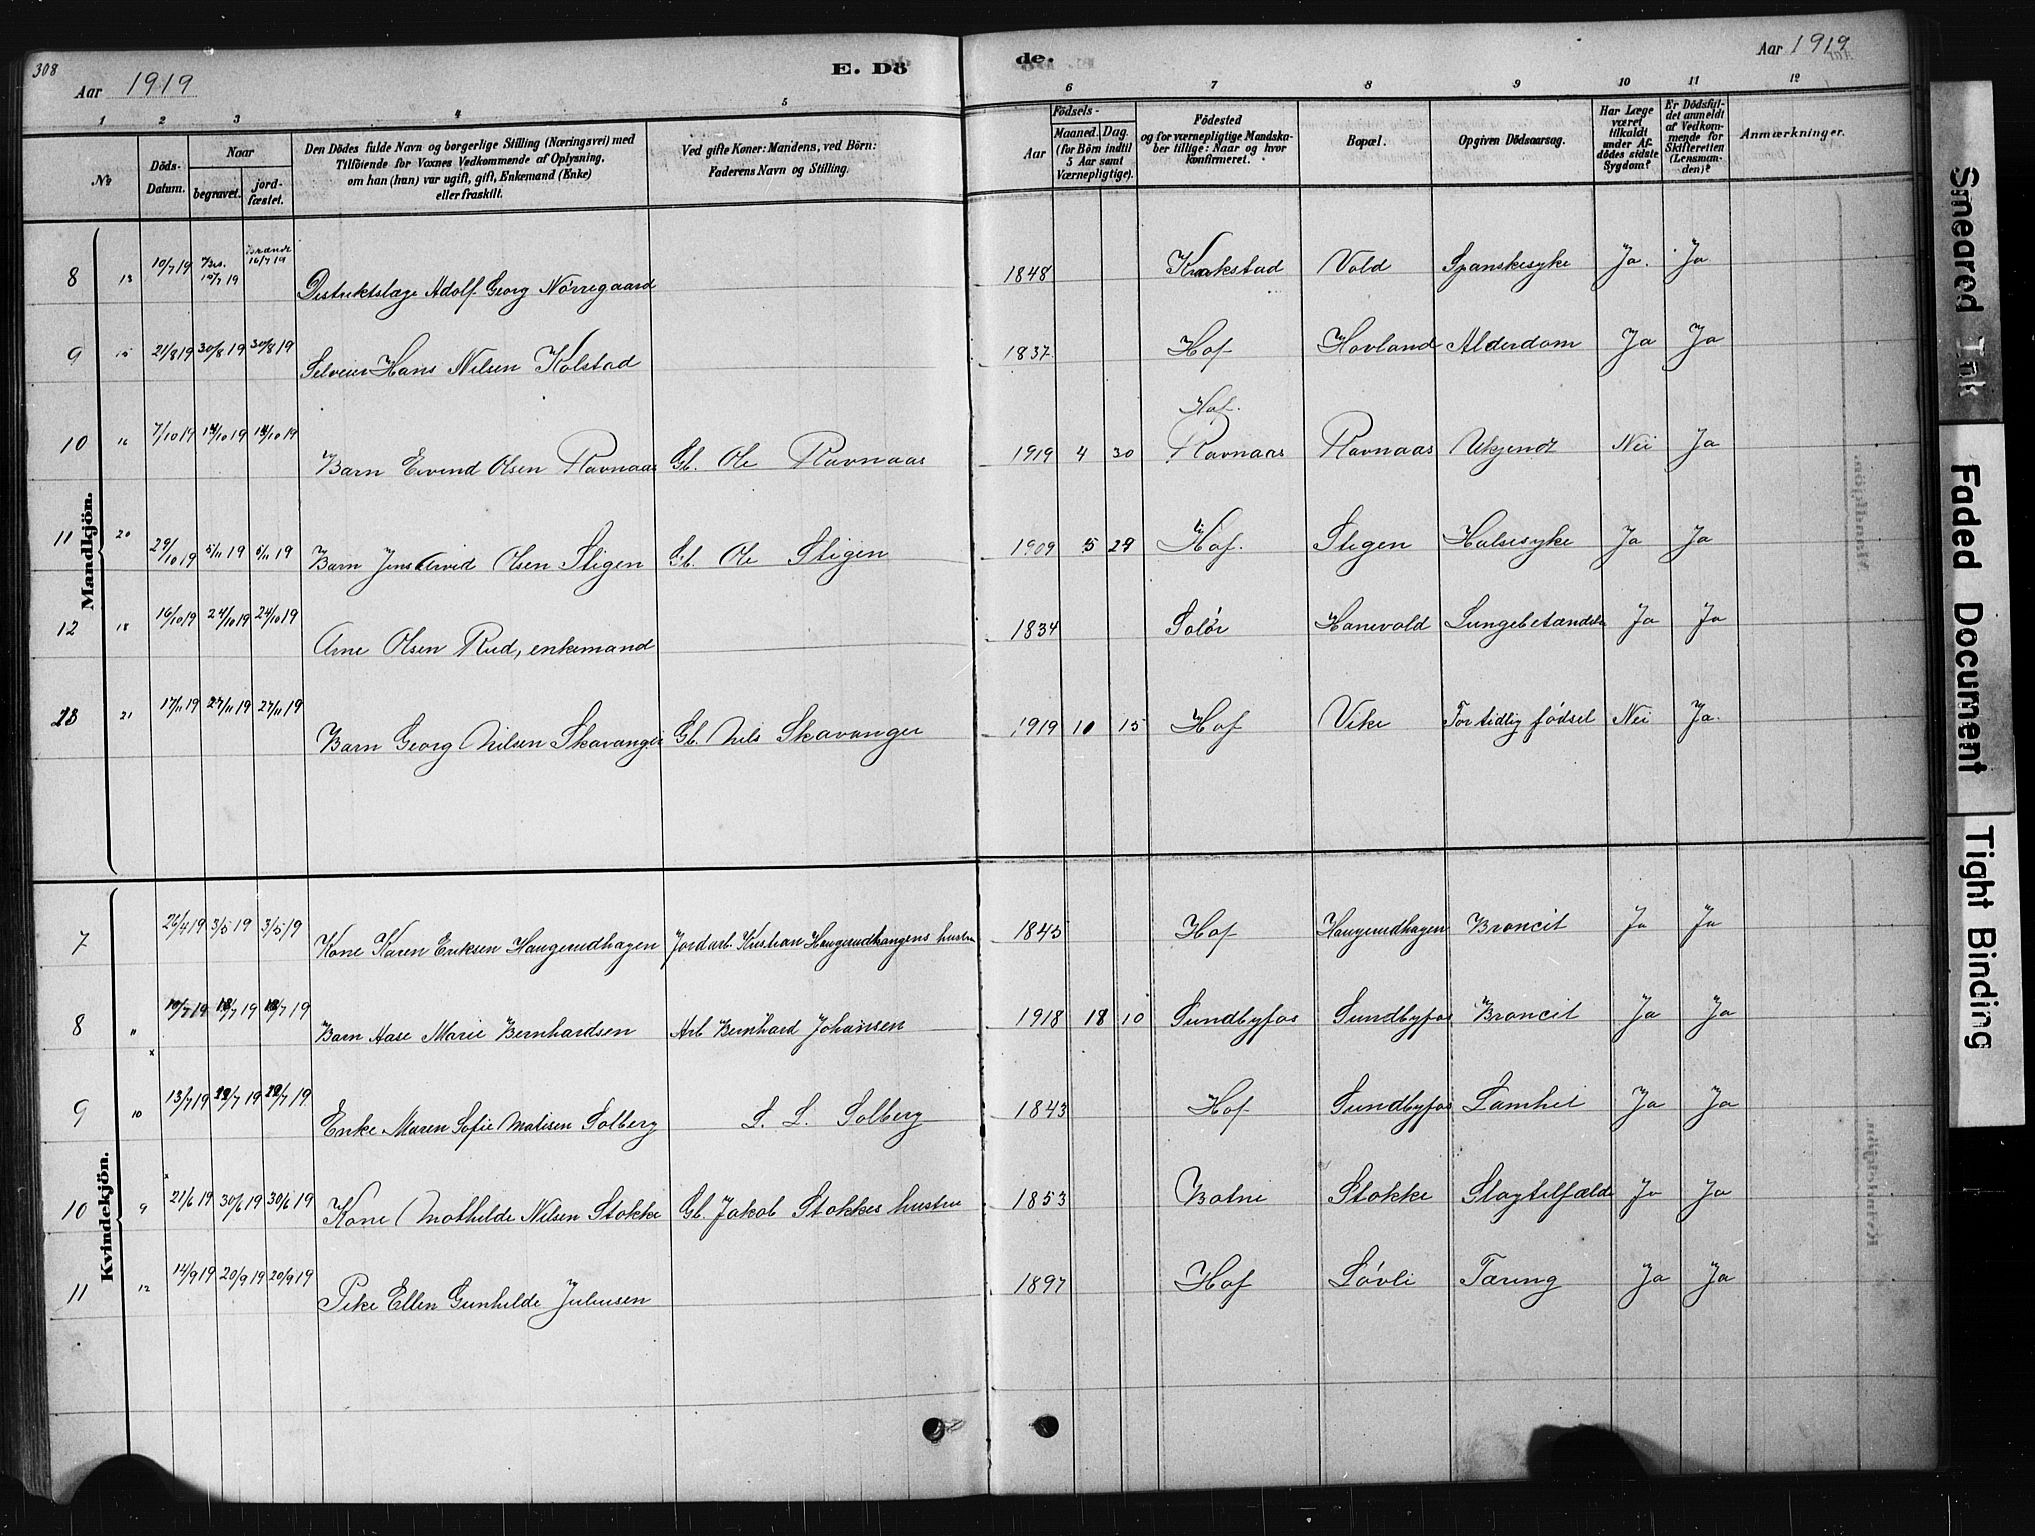 308
Aar 1919
E. Dö
de.
Aar 1919
1 2 3 4 5 6 7 8 9 10 11 12
No
Döds-
Datum.
Naar
begravet.
jord-
fæstet.
Den Dödes fulde Navn og borgerlige Stilling (Næringsvei) med
Tilföiende for Voxnes Vedkommende af Oplysning,
om han (hun) var ugift, gift, Enkemand (Enke)
eller fraskilt.
Ved gifte Koner: Mandens, ved Börn:
Faderens Navn og Stilling.
Födsels-
Aar
Maaned. Dag.
(for Börn indtil
5 Aar samt
Værnepligtige).
Födested
og for værnepligtige Mandska-
ber tillige: Naar og hvor
konfirmeret.
Bopæl.
Opgiven Dödsaarsag.
Har Læge
været
tilkaldt
under Af-
dödes sidste
Sygdom?
Er Dödsfal-
det anmeldt
af Vedkom-
mende for
Skifteretten
(Lensman-
den)?
Anmærkninger.
Mandkjön.
8 13 10/7 19 16/7 19 Distriktslæge Adolf Georg Nörregaard 1848 Krakstad Vold Spanskesyke Ja. Ja
9 15 21/8 19 30/8 19 30/8 19 Selveier Hans Nilsen Kolstad 1837 Hof Hovland Alderdom Ja Ja
Hof.
10 16 7/10 19 14/10 19 14/10 19 Barn Eivind Olsen Ravnaas Gb. Ole Ravnaas 1919 4 30 Ravnaas Ravnaas Ukjendt Nei Ja
11 20 29/10 19 5/11 19 5/11 19 Barn Jens Arvid Olsen Stigen Gb. Ole Stigen 1909 5 29 Hof. Stigen Halsesyke Ja Ja
12 18 16/10 19 24/10 19 24/10 19 Arne Olsen Rud, enkemand 1834 Solör Hanevold Lungebetændelse Ja Ja
13 21 17/11 19 27/11 19 27/11 19 Barn Georg Nilsen Skavanger Gb. Nils Skavanger 1919 10 15 Hof Vike For tidlig födsel Nei Ja.
Kvindekjön.
7 26/4 19 3/5 19 3/5 19 Kone Karen Eriksen Haugerudhagen Jordarb. Kristian Haugerudhangens hustru 1845 Hof Haugerudhagen Broncit Ja Ja
8 11 10/7 19 18/7 19 18/7 19 Barn Aase Marie Bernhardsen Arb Bernhard Johansen 1918 18 10 Sundbyfos Sundbyfos Broncit Ja Ja
9 10 13/7 19 22/7 19 22/7 19 Enke Maren Sofie Matisen Solberg S. L. Solberg 1843 Hof Sundbyfos Lamhet Ja Ja
10 9 21/6 19 30/6 19 30/6 19 Kone Mathilde Nilsen Stokke Gb. Jakob Stokkes hustru 1853 Botne Stokke Slagtilfælde Ja Ja
11 12 14/9 19 20/9 19 20/9 19 Pike Ellen Gunhilde Juliusen 1897 Hof Lövli Tæring Ja Ja
Smeared Ink
Faded Document
Tight Binding